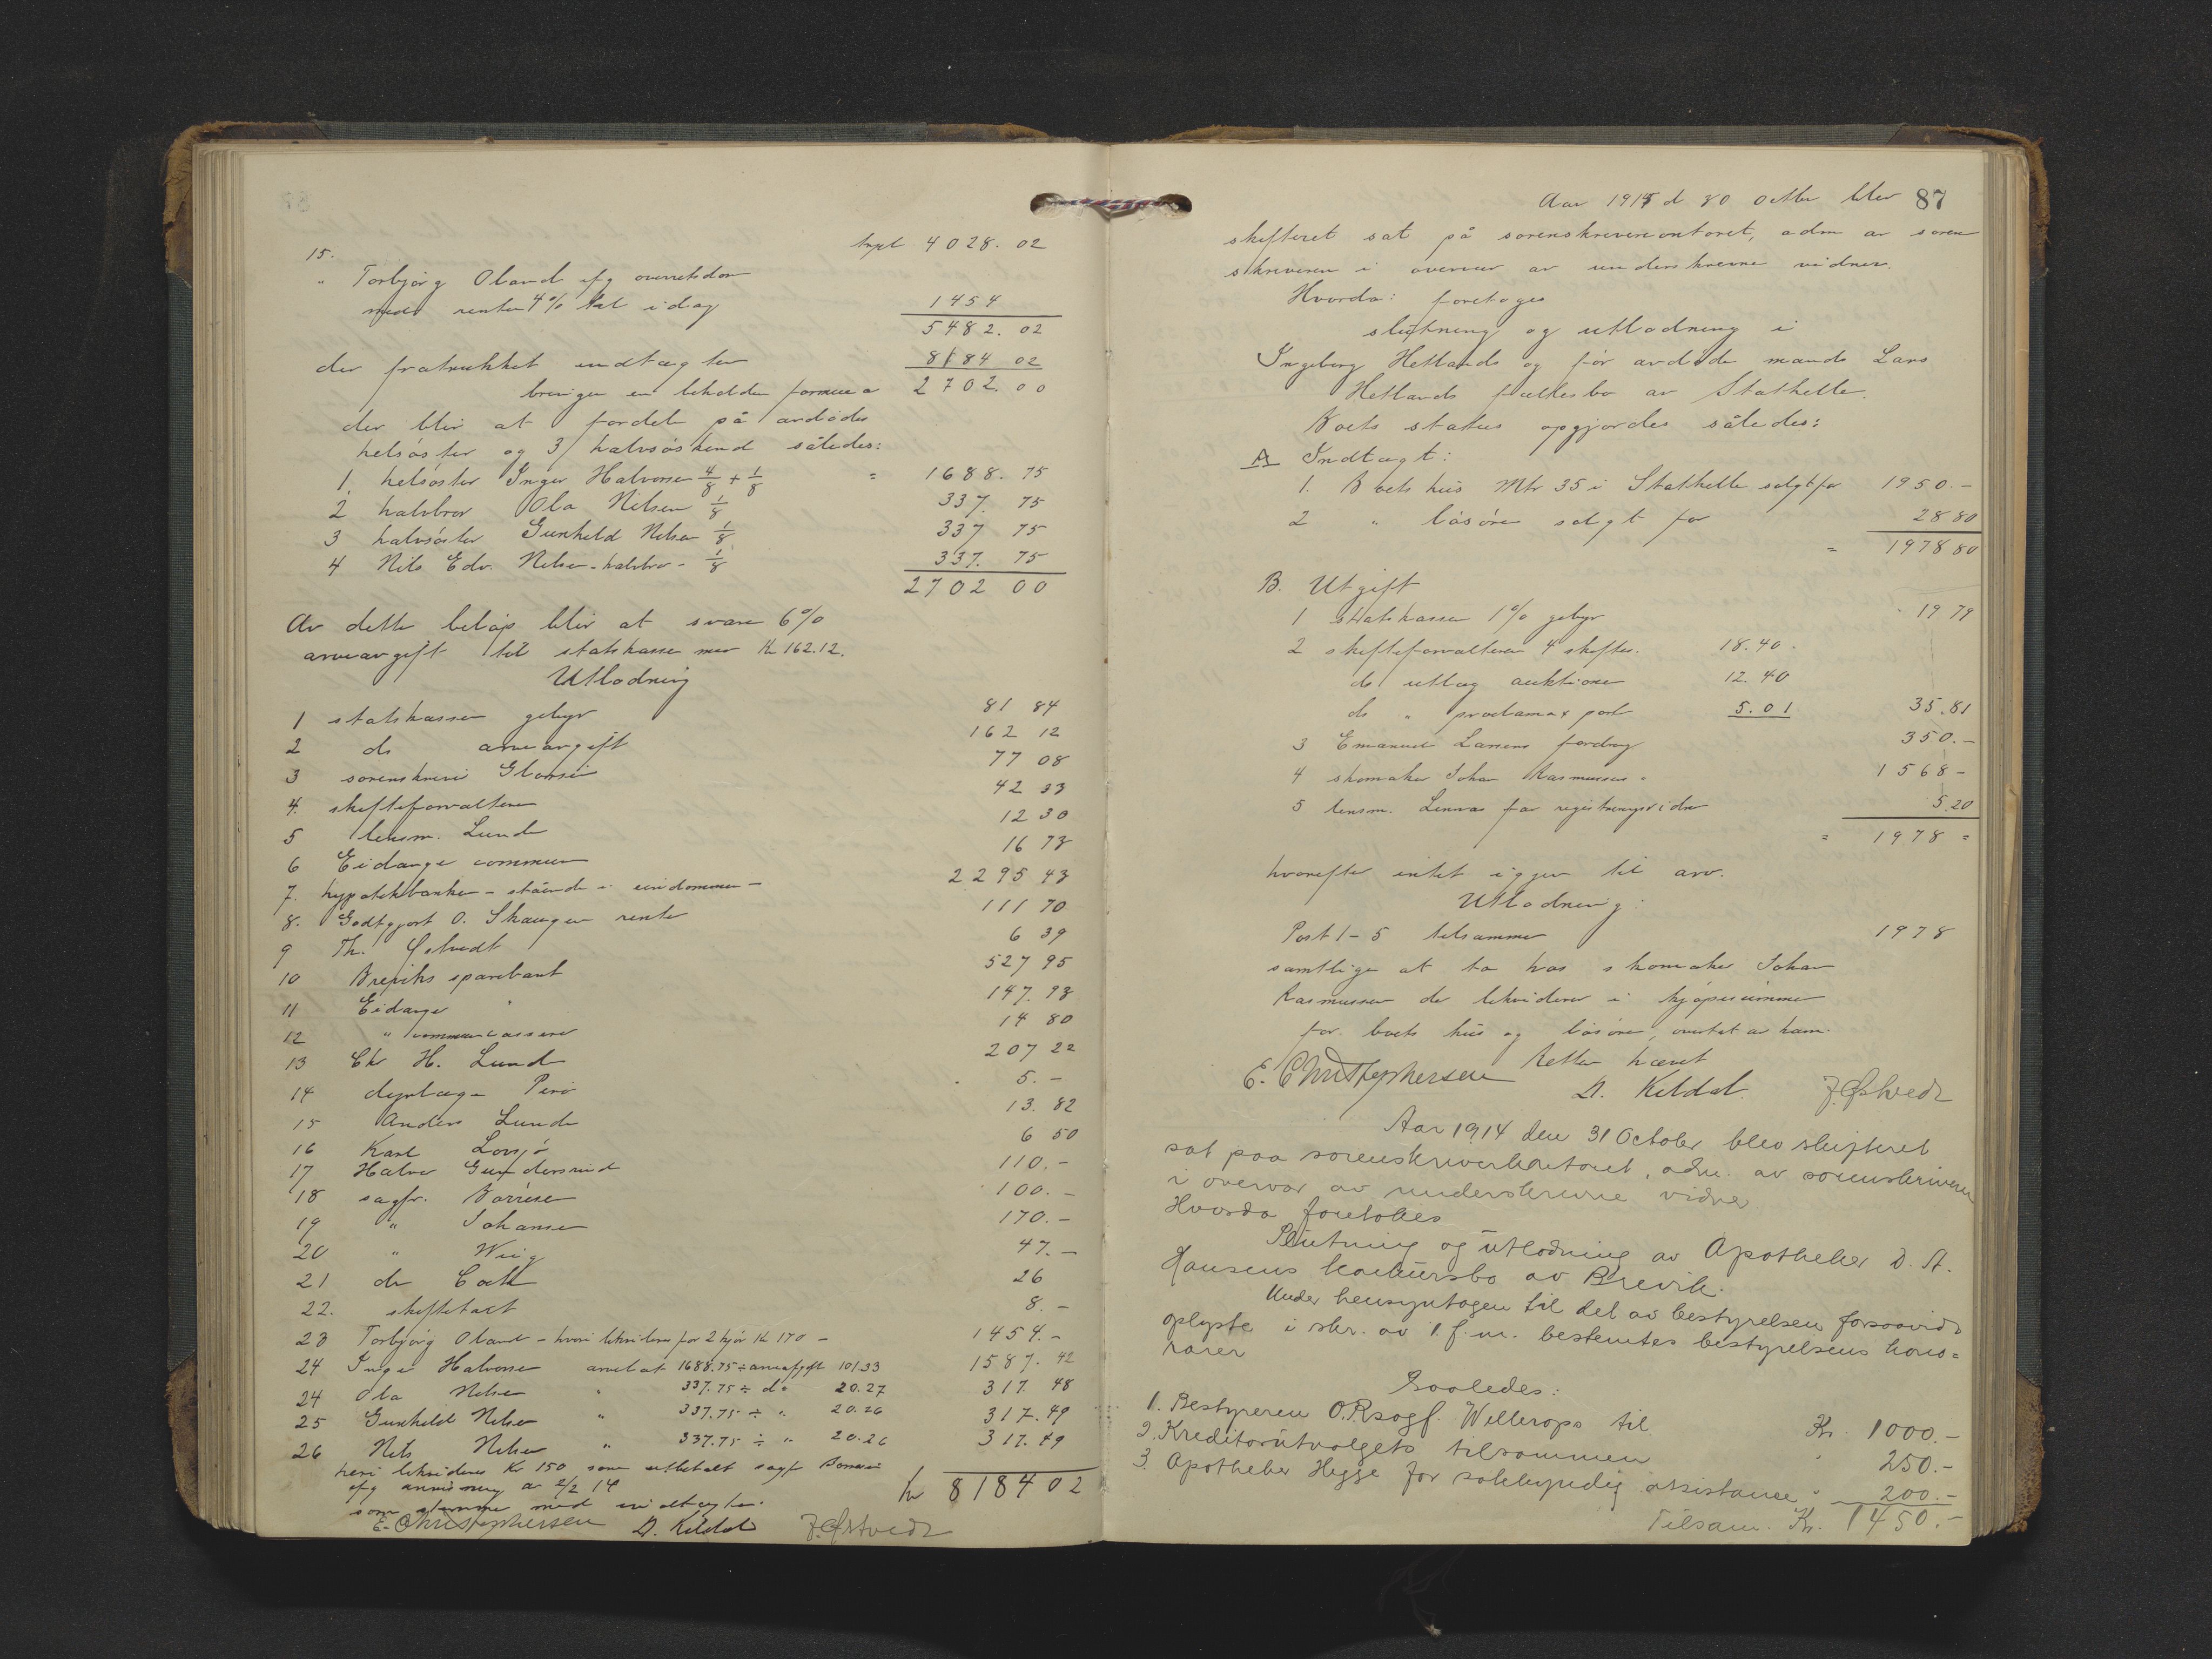 15.
trpt 4028.02
" Torbjørg Oland efg overretsdom
med renter 4% til idag 1454
5482.02
der fratrukket indtægter 8184 02
bringer en beholden formue a 2702.00
der blir at fordele på avdødes
helsøster og 3 halvsøskend således:
1. helsøster Inger Halvorsen 4/8 + 1/8 = 1688.75
2 halvbror Ola Nilsen 1/8 337.75
3 halvsøster Gunhild Nilsen 1/8 337 75
4 Nils Edv. Nilsen - halvbror - 1/8 337.75
2702 00
Av dette beløp blir at svare 6%
arveavgift til statskassen med Kr 162.12.
Utlodning
1 statskassen gebyr 81 84
2 do arveavgift 162 12
3 sorenskriver 77 08
4. skifteforvalteren 42 33
5 lensm. Lund 12 30
6 Eidanger commune 16 73
7. hypotekbanken - stående i eiendommen - 2295 43
8. Godtgjort O. Skaugen renter 111 70
9 Th. Østvedt 6 39
10 Breviks sparebank 527 95
11 Eidanger " 147.93
12 " communecasserer 14 80
13 Chr H. Lund 207 22
14 dyrlæge 5.-
15 Anders Lund 13.82
16 Karl Lovsjø 6 50
17 Halvor Gundersrud 110.-
18 sagfr. Borresen 100.-
19 " Johansen 170.-
20 " Wiig 47.-
21 dr Cock 26
22. skiftetaxt 8.-
23 Torbjørg Oland - hvori likvideres for 2 kjør Kr 170 - 1454.-
24 Inger Halvorsen arvelod 1688.75 ÷ arveafgift 101.33 1587.42
24 Ola Nilsen " 337.75 ÷ do 20.27 317.48
25 Gunhild Nilsen " 337.75 ÷ " 20.26 317.49
26 Nils Nilsen " 337.75 ÷ " 20.26 317.49
heri likvideres Kr 150 som utbetalt sagfr Borresen
efg anvisning av 2/2 14 kr 8184 02
som stemmer med indtægten.
E. Christophersen D. Keldal J. Østvedt
Aar 1914 d 30 octbr blev 87
skifteret sat på sorenskrivercontoret, adm av soren
skriveren i overvær av underskrevne vidner.
Hvorda: foretoges
slutning og utlodning i
Ingeborg Hetlands og før avdøde mands Lars
Hetlands fællesbo av Stathelle.
Boets status opgjordes således:
A Indtægt:
1. Boets hus Mtr 35 i Stathelle solgt for 1950.-
2 " løsøre solgt for 28 80
= 1978 80
B. Utgift
1 statskassen 1% gebyr 19 79
2 skifteforvalteren 4 skifter. 18.40.
do utlæg auktioner 12.40
do " proclama x port 5.01 35.81
3 Emanuel Larsens fordring 350.-
4 skomaker Johan Rasmussens " 1568 -
5 lensm. Linnaas for registreringsvidner 5.20
= 1978 =
hvorefter intet igjen til arv.
Utlodning:
Post 1-5 tilsammen 1978
samtlige at ta hos skomaker Johan
Rasmussen der likviderer i kjøpesummen
for boets hus og løsøre, overtat av ham.
Retten hævet
E. Christophersen D. Keldal. J. Østvedt
Aar 1914 den 31 October blev skifteret
sat paa sorenskriverkontoret, adm. av sorenskriveren
i overvær av underskrevne vidner
Hvorda foretokes
Slutning og utlodning av Apotheker D. A.
Hansens konkursbo av Brevik.
Under hensyntagen til det av bestyrelsen forsaavidt
oplyste i skr. av 1. f. m. bestemtes bestyrelsens hono=
rarer
saaledes:
1. Bestyreren O.R.sagf. Wellerops til Kr. 1000.-
2. Kreditorutvalgets tilsammen " 250.-
3. Apotheker Hegge for sakkyndig assistance " 200.-
Tilsam. Kr. 1450.-